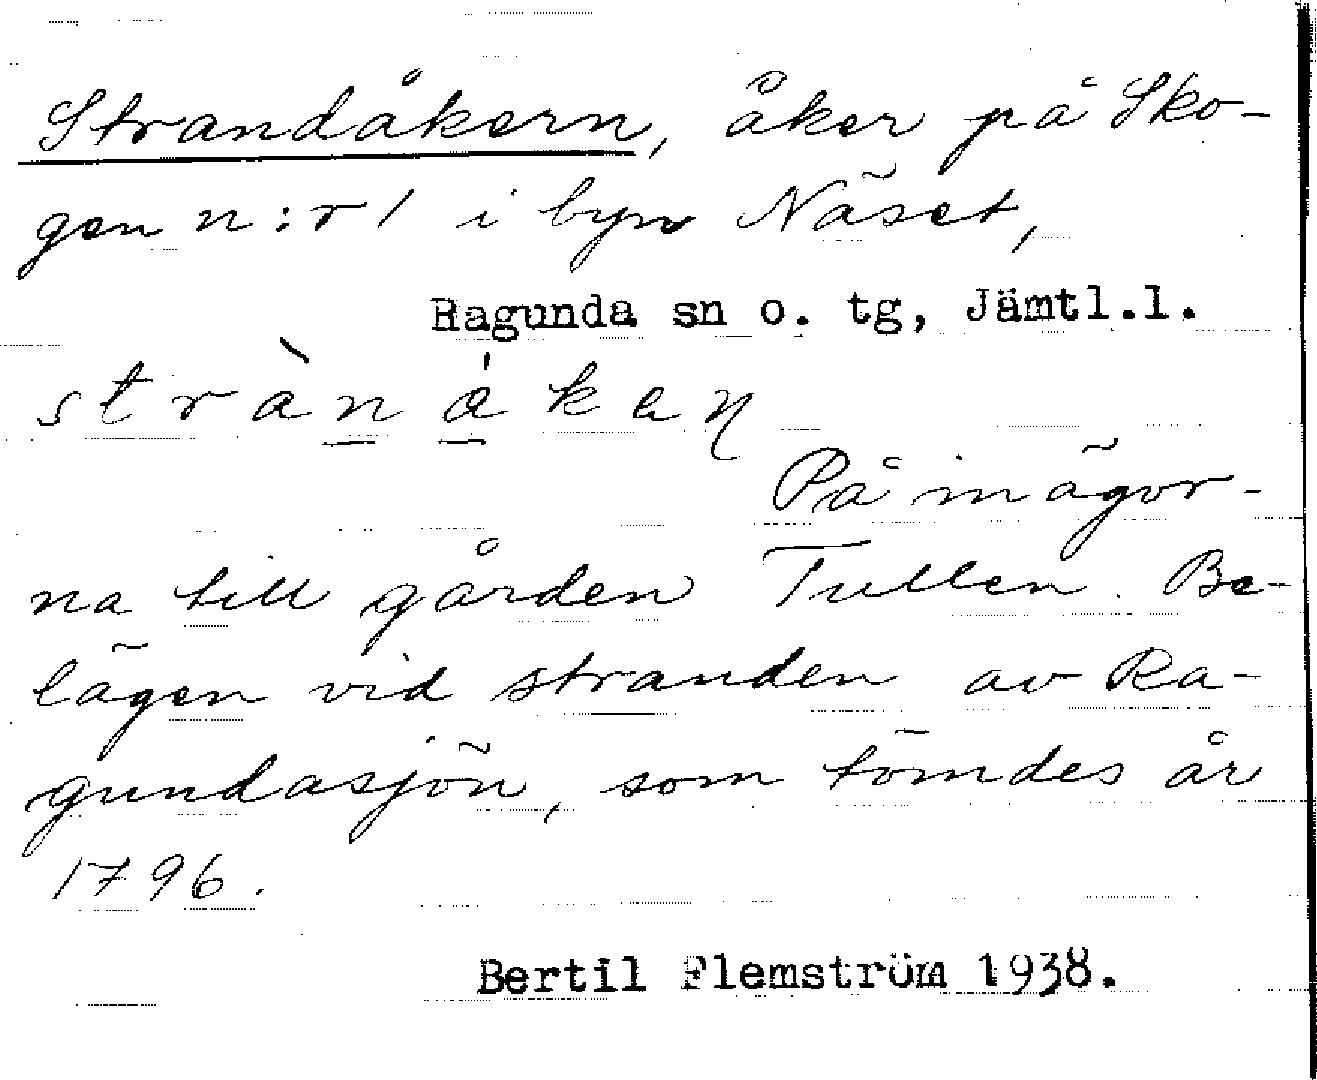 Strandåkern, åker på Sko-
gen n:r 1 i byn Näset,
Ragunda sn o. tg, Jämtl.l.
På inägor-
na till gården Tullen. Be-
lägen vid stranden av Ra-
gundasjön, som tömdes år
1796.
Bertil Flemström 1938.